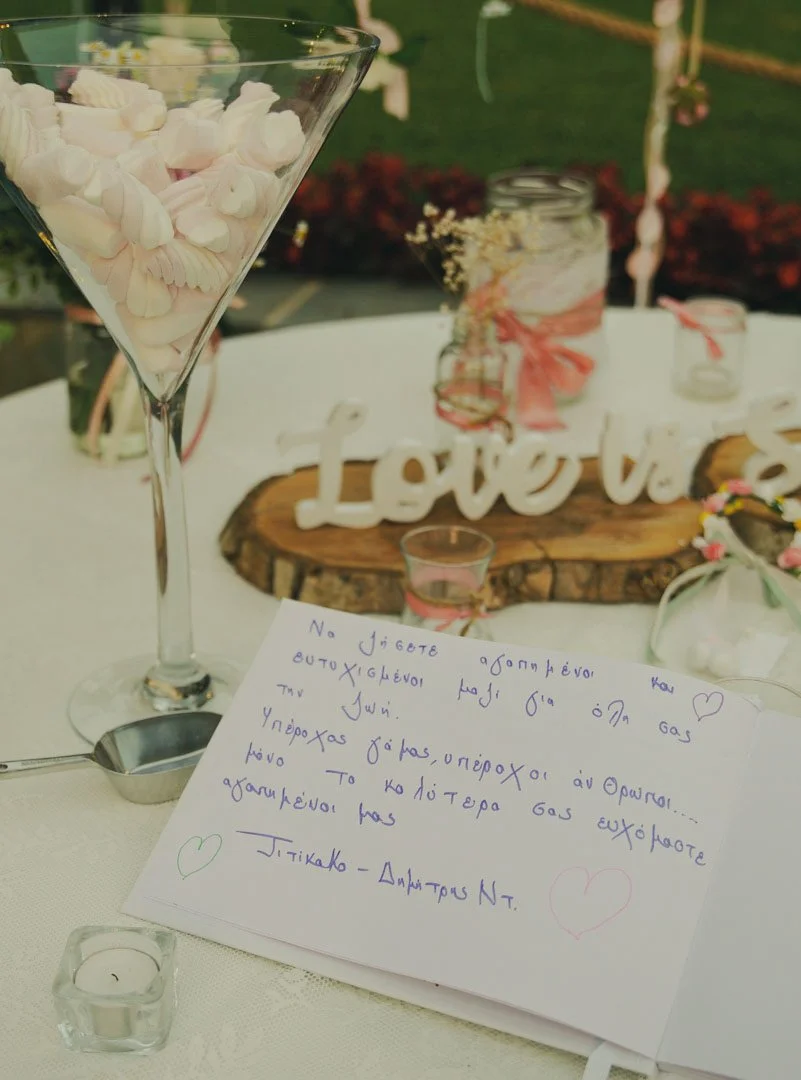 Love is S
Να ζήσετε αγαπημένοι και
ευτυχισμένοι μαζι για όλη σας
την ζωή.
Υπέροχος γάμος, υπέροχοι άνθρωποι....
μόνο το καλύτερα σας ευχόμαστε
αγαπημένοι μας
Τιτίκακο - Δημήτρης Ντ.